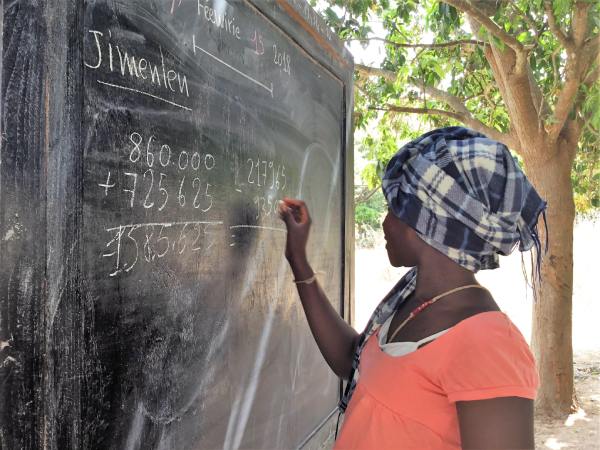 15 2018
Jimenlen
860.000
+ 725 625
= 1585.625
- 217965
=